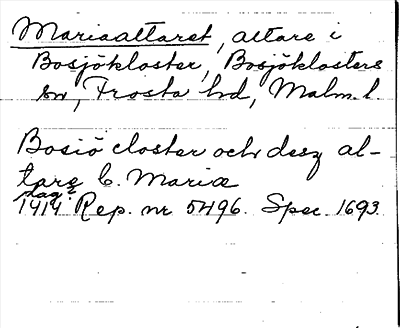 Mariaaltaret, altare i
Bosjökloster, Bosjöklosters
sn, Frosta hd, Malm. l.
Bosiö closter och desz al-
tare b. Mariæ
1414 Rep. nr 5496. Spec. 1693.